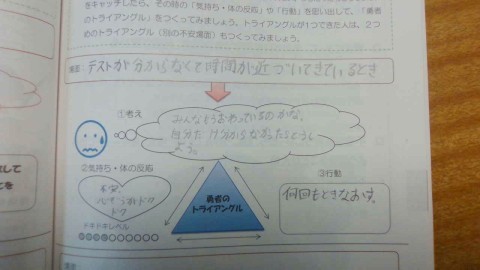 をキャッチしたら、その時の「気持ち・体の反応」や「行動」を思い出して、「勇者
のトライアングル」をつくってみましょう。トライアングルが1つできた人は、2つ
めのトライアングル(別の不安場面)もつくってみましょう。
場面 テストが分からなくて時間が近づいてきているとき
①考え
みんなもうおわっているのかな。
自分だけ分からなかったらどうし
よう。
②気持ち・体の反応
③行動
不安、
ドキドキレベル
勇者の
トライアングル
何回もときなおす。